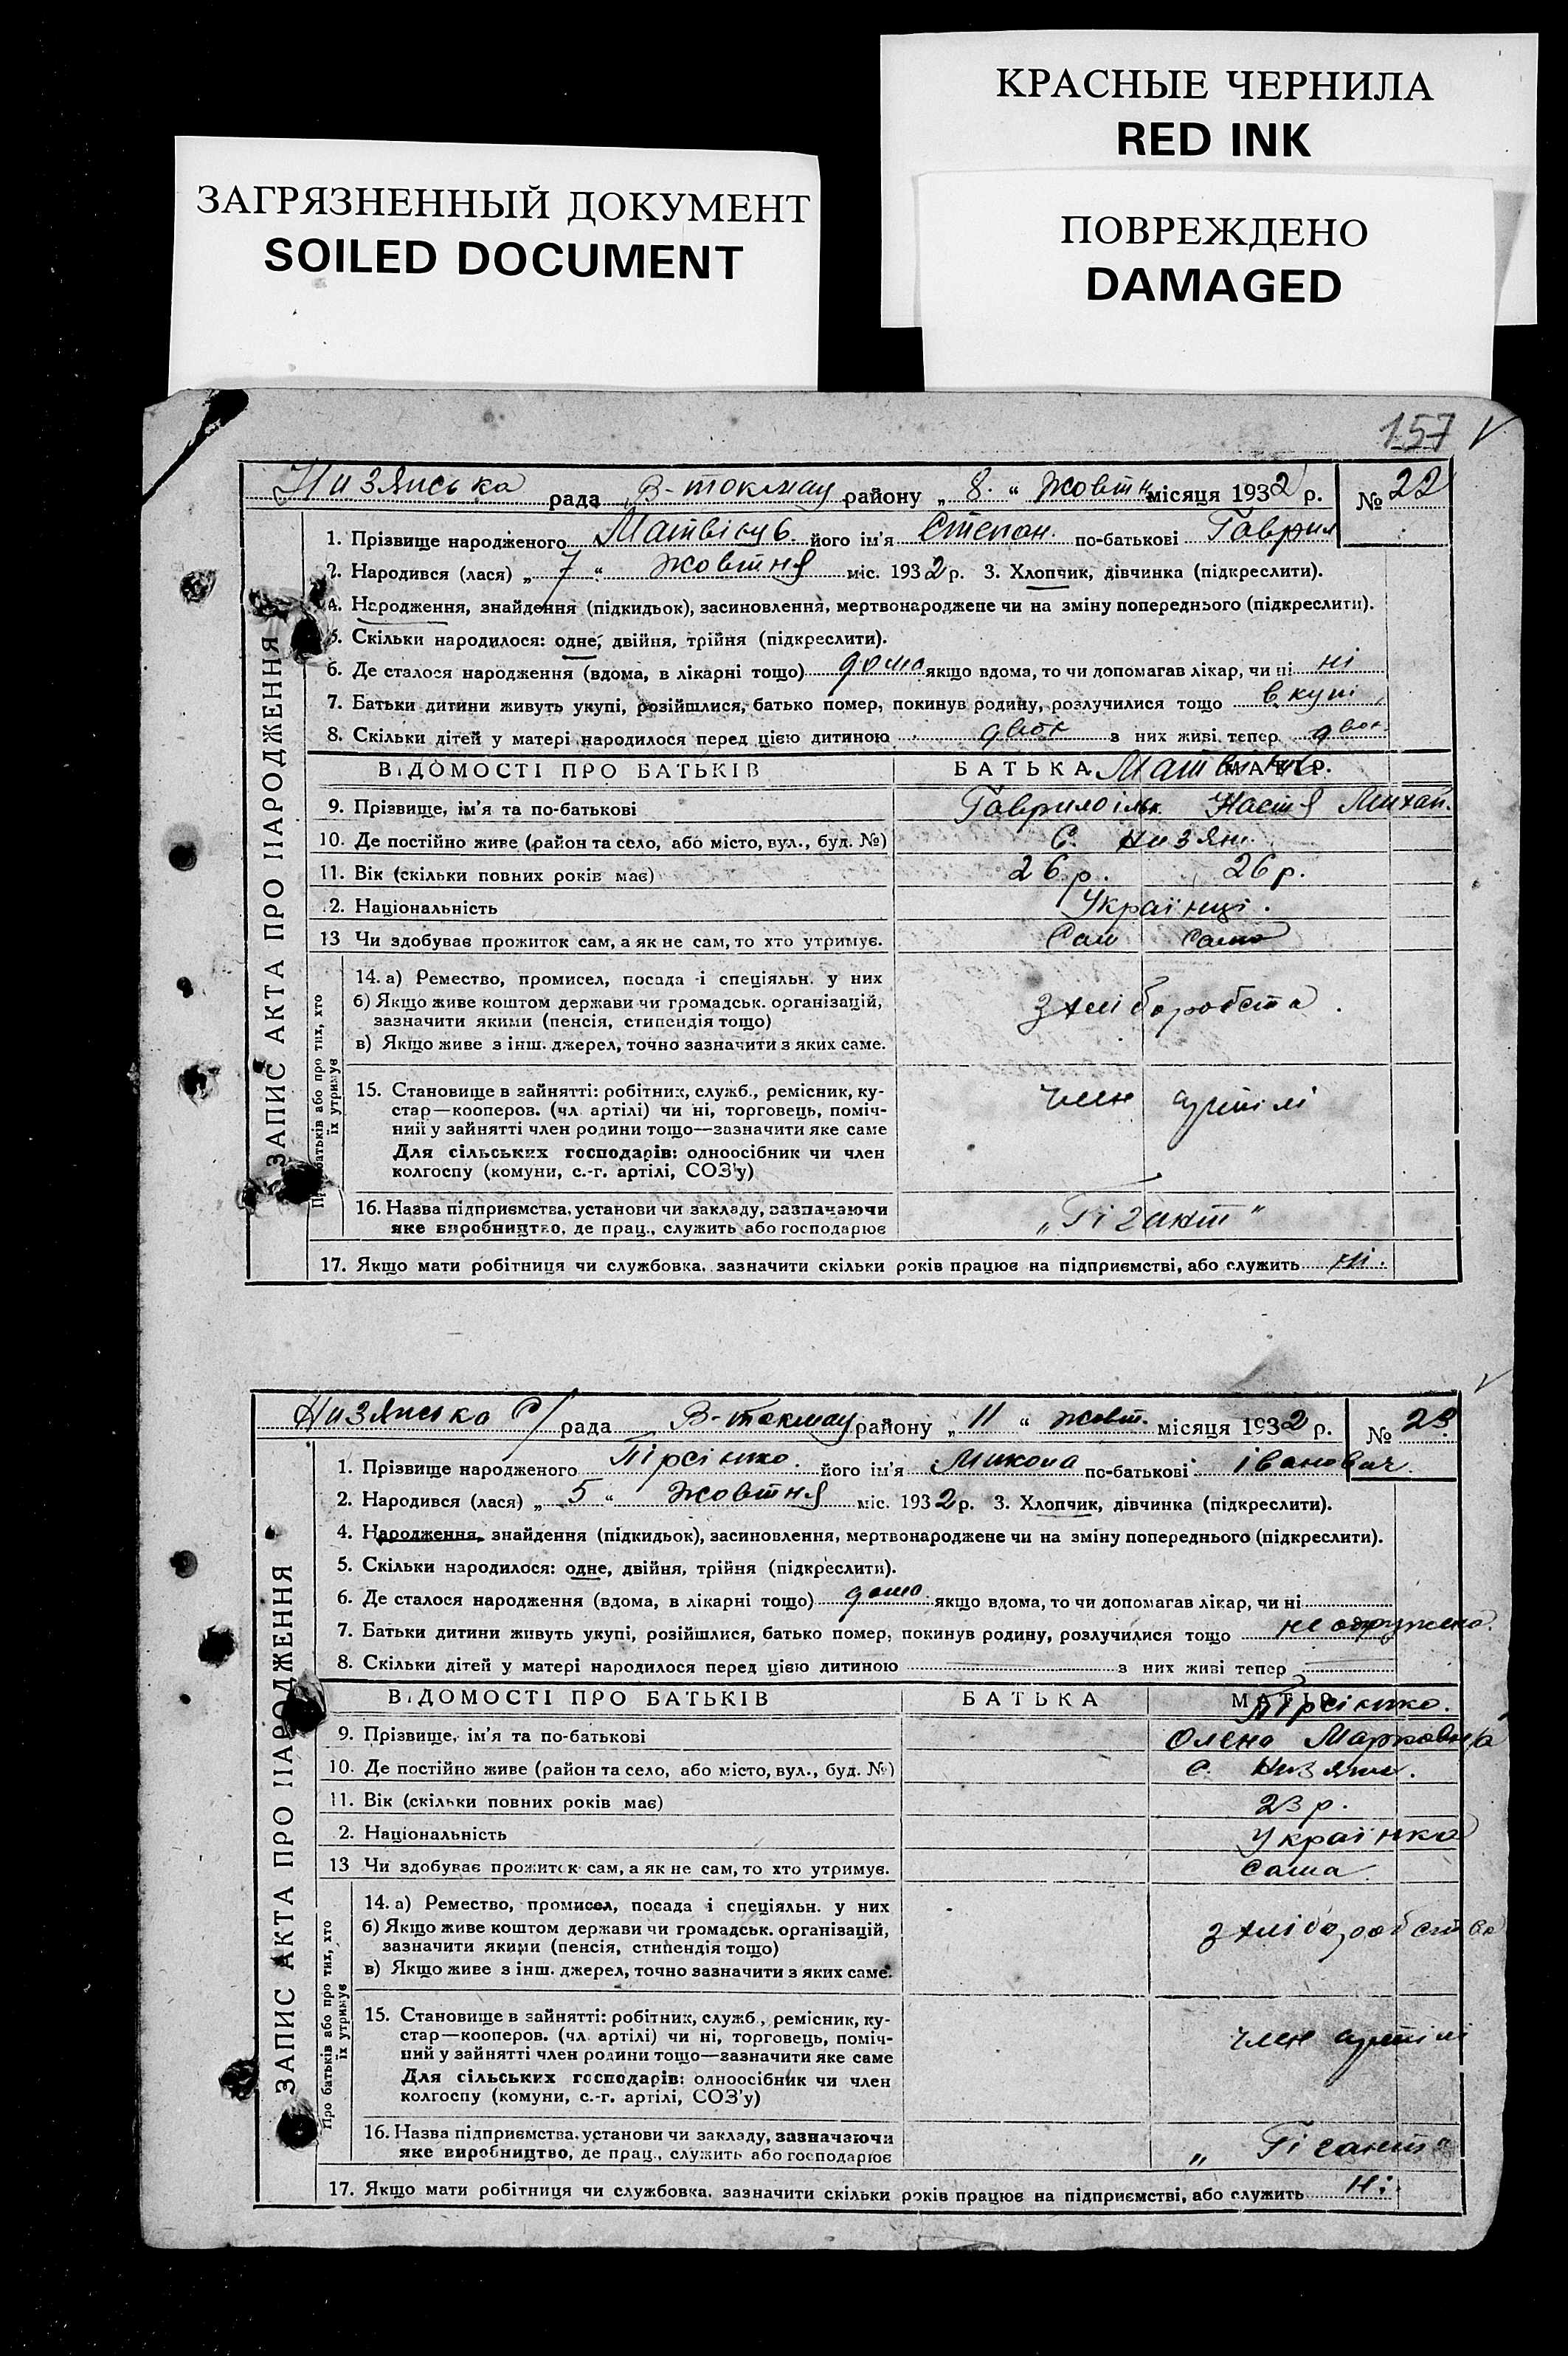 КРАСНЫЕ ЧЕРНИЛА
RED INK
ЗАГРЯЗНЕННЫЙ ДОКУМЕНТ
SOILED DOCUMENT
ПОВРЕЖДЕНО
DAMAGED
157
Низянська рада В-токмау району „ 8. “ Жовтн місяця 1932 р. № 22
ЗАПИС АКТА ПРО НАРОДЖЕННЯ
1. Прізвище народженого його ім'я Степан. по-батькові Гаврил
2. Народився (лася) „ 7 “ Жовтня міс. 1932 р. 3. Хлопчик, дівчинка (підкреслити).
4. Народження, знайдення (підкидьок), засиновлення, мертвонароджене чи на зміну попереднього (підкреслити).
5. Скільки народилося: одне, двійня, трійня (підкреслити).
6. Де сталося народження (вдома, в лікарні тощо) дома якщо вдома, то чи допомагав лікар, чи ні ні
7. Батьки дитини живуть укупі, розійшлися, батько помер, покинув родину, розлучилися тощо вкупі
8. Скільки дітей у матері народилося перед цією дитиною двоє з них живі тепер двоє
ВІДОМОСТІ ПРО БАТЬКІВ БАТЬКА МАТІР.
9. Прізвище, ім'я та по-батькові Гаврило ільк. Настя Михай.
10. Де постійно живе (район та село, або місто, вул., буд. №) С. Низяни.
11. Вік (скільки повних років має) 26 р. 26 р.
2. Національність Українці.
13 Чи здобуває прожиток сам, а як не сам, то хто утримує. Сам сама
Про батьків або про тих, хто
їх утримує
14. а) Ремество, промисел, посада і спеціяльн. у них
б) Якщо живе коштом держави чи громадськ. організацій,
зазначити якими (пенсія, стипендія тощо) з хліборобста.
в) Якщо живе з інш. джерел, точно зазначити з яких саме.
15. Становище в зайнятті: робітник, служб., ремісник, ку-
стар—кооперов. (чл. артілі) чи ні, торговець, поміч- член артілі
ний у зайнятті член родини тощо—зазначити яке саме
Для сільських господарів: одноосібник чи член
колгоспу (комуни, с.-г. артілі, СОЗ'у)
16. Назва підприємства, установи чи закладу, зазначаючи
яке виробництво, де прац., служить або господарює „Гігант“
17. Якщо мати робітниця чи службовка, зазначити скільки років працює на підприємстві, або служить ні.
Низянська С/рада В-токмау району „ 11 “ жовт. місяця 1932 р. № 23
ЗАПИС АКТА ПРО НАРОДЖЕННЯ
1. Прізвище народженого Пірсінко. його ім'я Микола по-батькові іванович.
2. Народився (лася) „ 5 “ Жовтня міс. 1932 р. 3. Хлопчик, дівчинка (підкреслити).
4. Народження, знайдення (підкидьок), засиновлення, мертвонароджене чи на зміну попереднього (підкреслити).
5. Скільки народилося: одне, двійня, трійня (підкреслити).
6. Де сталося народження (вдома, в лікарні тощо) дома якщо вдома, то чи допомагав лікар, чи ні
7. Батьки дитини живуть укупі, розійшлися, батько помер, покинув родину, розлучилися тощо не одружена.
8. Скільки дітей у матері народилося перед цією дитиною з них живі тепер
ВІДОМОСТІ ПРО БАТЬКІВ БАТЬКА МАТІР Пірсінко.
9. Прізвище, ім'я та по-батькові Олена Марковна
10. Де постійно живе (район та село, або місто, вул., буд. №) С. Низяни.
11. Вік (скільки повних років має) 23 р.
2. Національність Українка
13 Чи здобуває прожиток сам, а як не сам, то хто утримує. Сама
Про батьків або про тих, хто
їх утримує
14. а) Ремество, промисел, посада і спеціяльн. у них
б) Якщо живе коштом держави чи громадськ. організацій, з хліборобства
зазначити якими (пенсія, стипендія тощо)
в) Якщо живе з інш. джерел, точно зазначити з яких саме.
15. Становище в зайнятті: робітник, служб., ремісник, ку-
стар—кооперов. (чл. артілі) чи ні, торговець, поміч- член артілі
ний у зайнятті член родини тощо—зазначити яке саме
Для сільських господарів: одноосібник чи член
колгоспу (комуни, с.-г. артілі, СОЗ'у)
16. Назва підприємства, установи чи закладу, зазначаючи
яке виробництво, де прац., служить або господарює „Гігант“
17. Якщо мати робітниця чи службовка, зазначити скільки років працює на підприємстві, або служить ні.